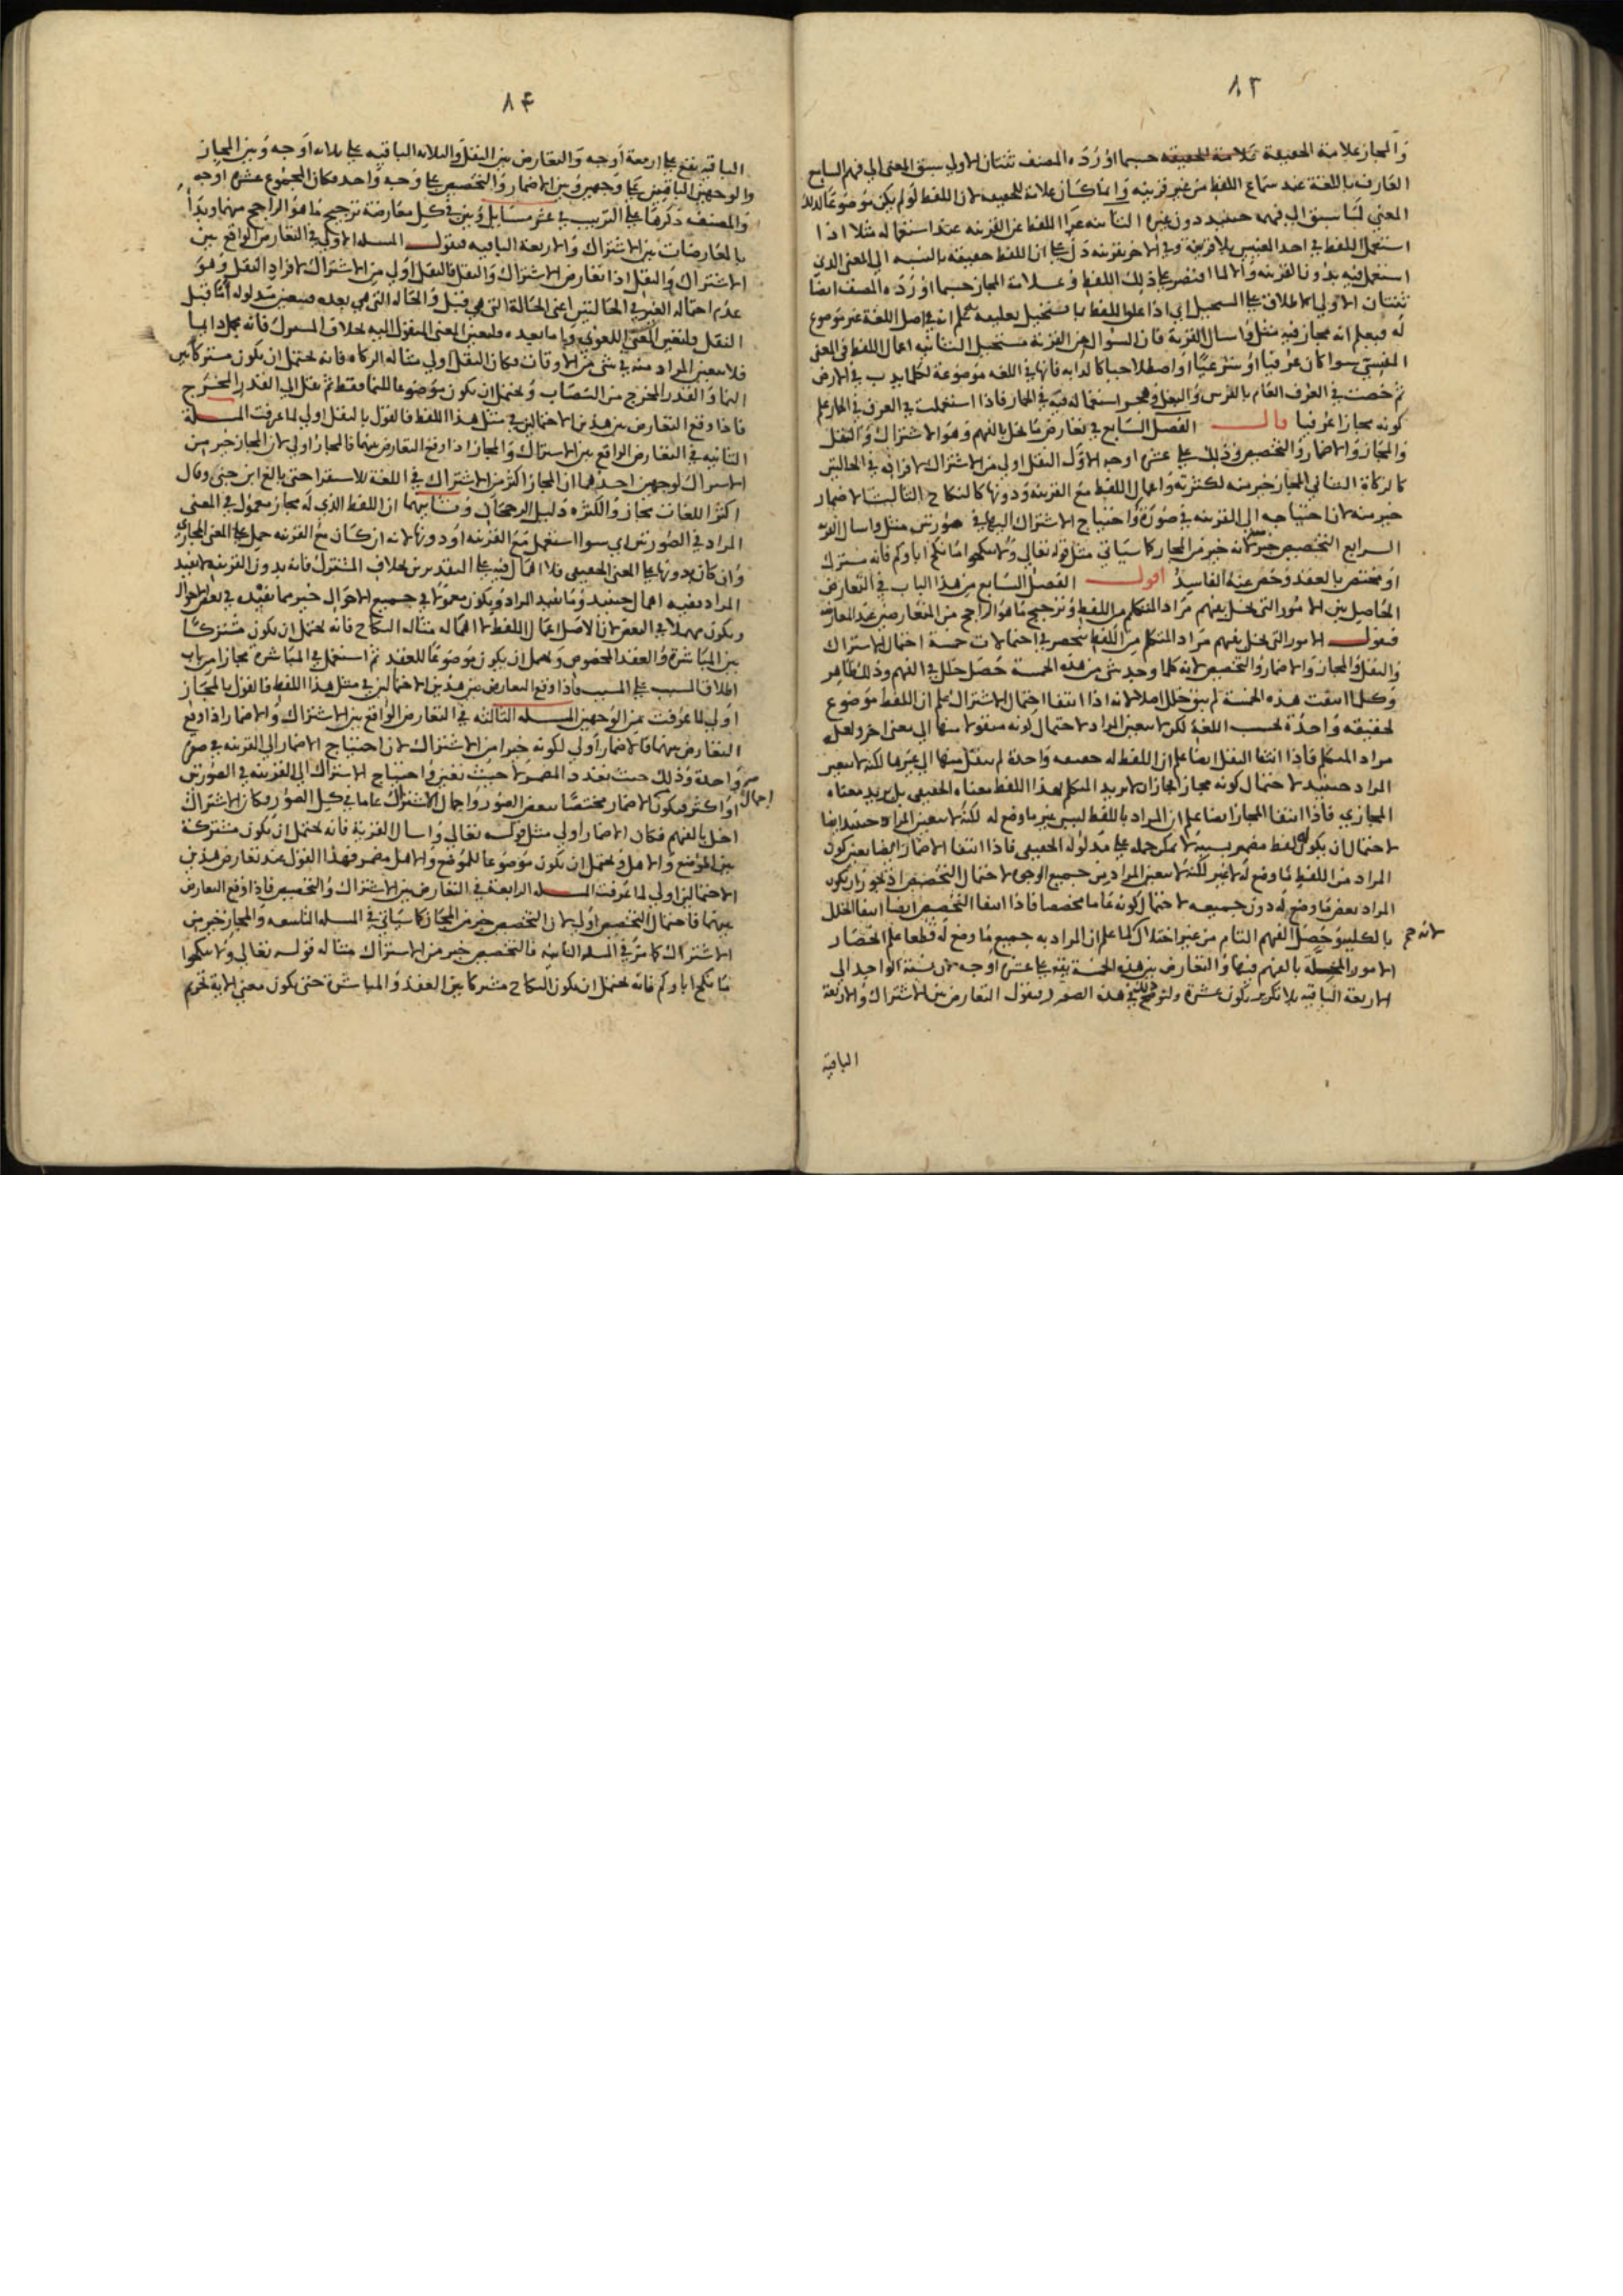 ٨٣
والمجاز علامة الحقيقة علامة الحقيقه حسبما اورده المصنف ثنتان الاولي سبق المعنى الي فهم السامع
العارف باللغة عند سماع اللفظ من غير قرينه وانما كان علامة للحقيقه لان اللفظ لو لم يكن موضوعا لذلك
المعني لما سبق الي فهمه حينيد دون غيره الثانيه عرا اللفظ عن القرينه عند استعماله مثلا اذا
استعمل اللفظ في احد المعنيين بلا قرينة وفي الاخر بقرينه دل علي ان اللفظ حقيقة بالنسبه الي المعنى الذي
استعمل فيه بدون القرينه والا لما اقتصر علي ذلك اللفظ وعلامة المجاز حسبما اورده المصنف ايضا
ثنتان الاولي الاطلاق علي المستحيل اي اذا علق اللفظ بما تستحيل تعليقه به علم انه في اصل اللغة غير موضوع
له فيعلم انه مجاز فيه مثل واسال القرية فان السوال عن القرية مستحيل الثانيه اعمال اللفظ في المعنى
المنسي سوا كان عرفيا او شرعيا او اصطلاحيا كالدابه فانها في اللغه موضوعة لكل ما يدب في الارض
ثم خصت في العرف العام بالفرس والبغل وهجر استعماله فيه في الحمار فاذا استعملت في العرف في الحمار علم
كونه مجازا عرفيا قال الفصل السابع في تعارض ما يخل بالفهم وهو الاشتراك والنقل
والمجاز والاضمار والتخصيص وذلك علي عشرة اوجه الاول النقل اولي من الاشتراك لافراده في الحالتين
كالزكاة الثاني المجاز خير منه لكثرته واعمال اللفظ مع القرينه ودونها كالنكاح الثالث الاضمار
خير منه لان احتياجه الي القرينه في صورة واحتياج الاشتراك اليها في صورتين مثل واسال القرية
الرابع التخصيص خير لانه خير من المجاز كما سياتي مثل قوله تعالي ولا تنكحوا ما نكح اباوكم فانه مشترك
او مختص بالعقد وخص عنه الفاسد اقول الفصل السابع من هذا الباب في التعارض
الحاصل بين الامور التي تخل بفهم مراد المتكلم من اللفظ وترجيح ما هو الراجح من المتعارضين عند المعارضة
فنقول الامور التي تخل بفهم مراد المتكلم من اللفظ تنحصر في احتمالات خمسة احتمال الاشتراك
والنقل والمجاز والاضمار والتخصيص لانه كلما وجد شي من هذه الخمسة حصل خلل في الفهم وذلك ظاهر
وكلما انتفت هذه الخمسة لم يبق خلل اصلا لانه اذا انتفا احتمال الاشتراك علم ان اللفظ موضوع
لحقيقه واحدة بحسب اللغة لكن لا يتعين المراد لاحتمال كونه منقولا منها الي معنى اخر ولعله
مراد المتكلم فاذا انتفا النقل ايضا علم ان اللفظ له حقيقه واحدة لم ينقل منها الي غيرها لكنه لا يتعين
المراد حينيد لاحتمال كونه مجازا لجاز ان لا يريد المتكلم بهذا اللفظ معناه الحقيقي بل يريد معناه
المجازي فاذا انتفا المجاز ايضا علم ان المراد باللفظ ليس غير ما وضع له لكنه لا يتعين المراد حينيد ايضا
لاحتمال ان يكون لفظ مضمر بسببه لا يمكن حمله علي مدلوله الحقيقي فاذا انتفا الاضمار ايضا تعين كون
المراد من اللفظ ما وضع له لا غير لكنه لا يتعين المراد من جميع الوجوه لاحتمال التخصيص اذ يجوز ان يكون
المراد بعض ما وضع له دون جميعه لاحتمال كونه عاما مخصصا فاذا انتفا التخصيص ايضا انتفا الخلل
بالكليه وحصل الفهم التام من غير اختلال لانه ح كما علم ان المراد به جميع ما وضع له قطعا علم انحصار
الامور المخلة بالفهم فيها والتعارض بين هذه الخمسة يقع علي عشرة اوجه لان نسبة الواحد الي
الاربعة الباقيه بلا تكرير يكون عشرة ولنوضح ذلك في هذه الصور فنقول التعارض بين الاشتراك والاربعة
الباقية
٨٤
الباقيه يقع علي اربعة اوجه والتعارض بين النقل والثلاثه الباقيه علي ثلاثه اوجه وبين المجاز
والوجهين الباقيين علي وجهين وبين الاضمار والتخصيص علي وجه واحد فكان المجموع عشرة اوجه
والمصنف ذكرها علي الترتيب في عشر مسايل وبين في كل معارضة ترجيح ما هو الراجح منهما وبدا
بالمعارضات بين الاشتراك والاربعة الباقيه فنقول المسله الاولي في التعارض الواقع بين
الاشتراك والنقل اذا تعارض الاشتراك والنقل فالنقل اولي من الاشتراك لافراد النقل وهو
عدم احتماله الغير في الحالتين اعنى الحالة التي هي قبل والحاله التي هي بعده فيتعين مدلوله اما قبل
النقل فلتعين المعنى اللغوي واما بعده فلتعين المعنى المنقول اليه بخلاف المشترك فانه مجمل دايما
فلا يتعين المراد منه في شي من الاوقات فكان النقل اولي مثاله الزكاه فانه يحتمل ان يكون مشتركا بين
النما والقدر المخرج من النصاب ويحتمل ان يكون موضوعا للنما فقط ثم نقل الي القدر المخرج
فاذا وقع التعارض بين هذين الاحتمالين في مثل هذا اللفظ فالقول بالنقل اولي لما عرفت المسلة
الثانيه في التعارض الواقع بين الاشتراك والمجاز اذا وقع التعارض بينهما فالمجاز اولي لان المجاز خير من
الاشتراك لوجهين احدهما ان المجاز اكثر من الاشتراك في اللغة للاستقرا حتى بالغ ابن جنى وقال
اكثر اللغات مجاز والكثره دليل الرجحان وثانيهما ان اللفظ الذي له مجاز معمول في المعنى
المراد في الصورتين اي سوا استعمل مع القرينه او دونها لانه ان كان مع القرينه حمل علي المعنى المجازي
وان كان بدونها علي المعنى الحقيقي فلا اهمال فيه علي التقديرين بخلاف المشترك فانه بدون القرينه لا يفيد
المراد ففيه اهمال حينيد وما يفيد المراد ويكون معمولا في جميع الاحوال خير مما يفيده في بعض الاحوال
ويكون مهملا في البعض لان الاصل اعمال اللفظ لا اهماله مثاله النكاح فانه يحتمل ان يكون مشتركا
بين المباشرة والعقد المخصوص ويحتمل ان يكون موضوعا للعقد ثم استعمل في المباشرة مجازا من باب
اطلاق السبب علي المسبب فاذا وقع التعارض بين هذين الاحتمالين في مثل هذا اللفظ فالقول بالمجاز
اولي لما عرفت من الوجهين المسله الثالثه في التعارض الواقع بين الاشتراك والاضمار اذا وقع
التعارض بينهما فالاضمار اولي لكونه خيرا من الاشتراك لان احتياج الاضمار الي القرينه في صورة
واحدة وذلك حيث تعدد المضمر لا حيث تعين واحتياج الاشتراك الي القرينه في الصورتين
او اكثر فيكون اجمال الاضمار مختصا ببعض الصور واجمال الاشتراك عاما في كل الصور فكان الاشتراك
اخل بالفهم فكان الاضمار اولي مثل قوله تعالي واسال القرية فانه يحتمل ان يكون مشتركة
بين الموضع والاهل ويحتمل ان تكون موضوعا للموضع والاهل مضمر فهذا القول عند تعارض هذين
الاحتمالين اولي لما عرفت المسله الرابعة في التعارض بين الاشتراك والتخصيص فاذا وقع التعارض
بينهما فاحتمال التخصيص اولي لان التخصيص خير من المجاز كما سياتي في المسله التاسعه والمجاز خير من
الاشتراك كما مر في المسله الثانيه فالتخصيص خير من الاشتراك مثاله قوله تعالي ولا تنكحوا
ما نكح اباوكم فانه يحتمل ان يكون النكاح مشتركا بين العقد والمباشرة حتى يكون معنى الاية تحريم